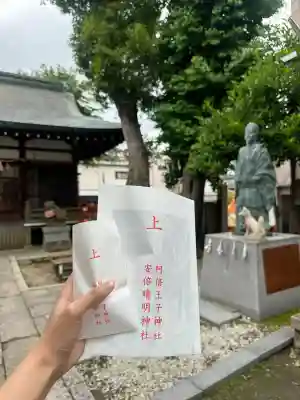 上
阿倍王子神社
安倍晴明神社
上